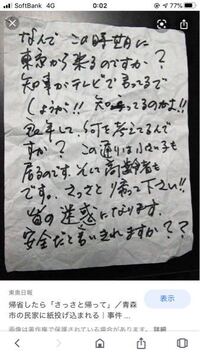 SoftBank 4G
0:02
77%
なんで この時期に
東京から来るのですか?
知事がテレビで言ってるで
しょうが!! 知ってるのかよ!!
何を考えてるんで
すか? この通りは小さい子も
居るのです そして高齢者も
です。さっさと帰って下さい!!
皆の迷惑になります。
安全だと言いきれますか??
東奥日報
帰省したら「さっさと帰って」/青森
市の民家に紙投げ込まれる | 事件 ...
表示
画像は著作権で保護されている場合があります。 詳細